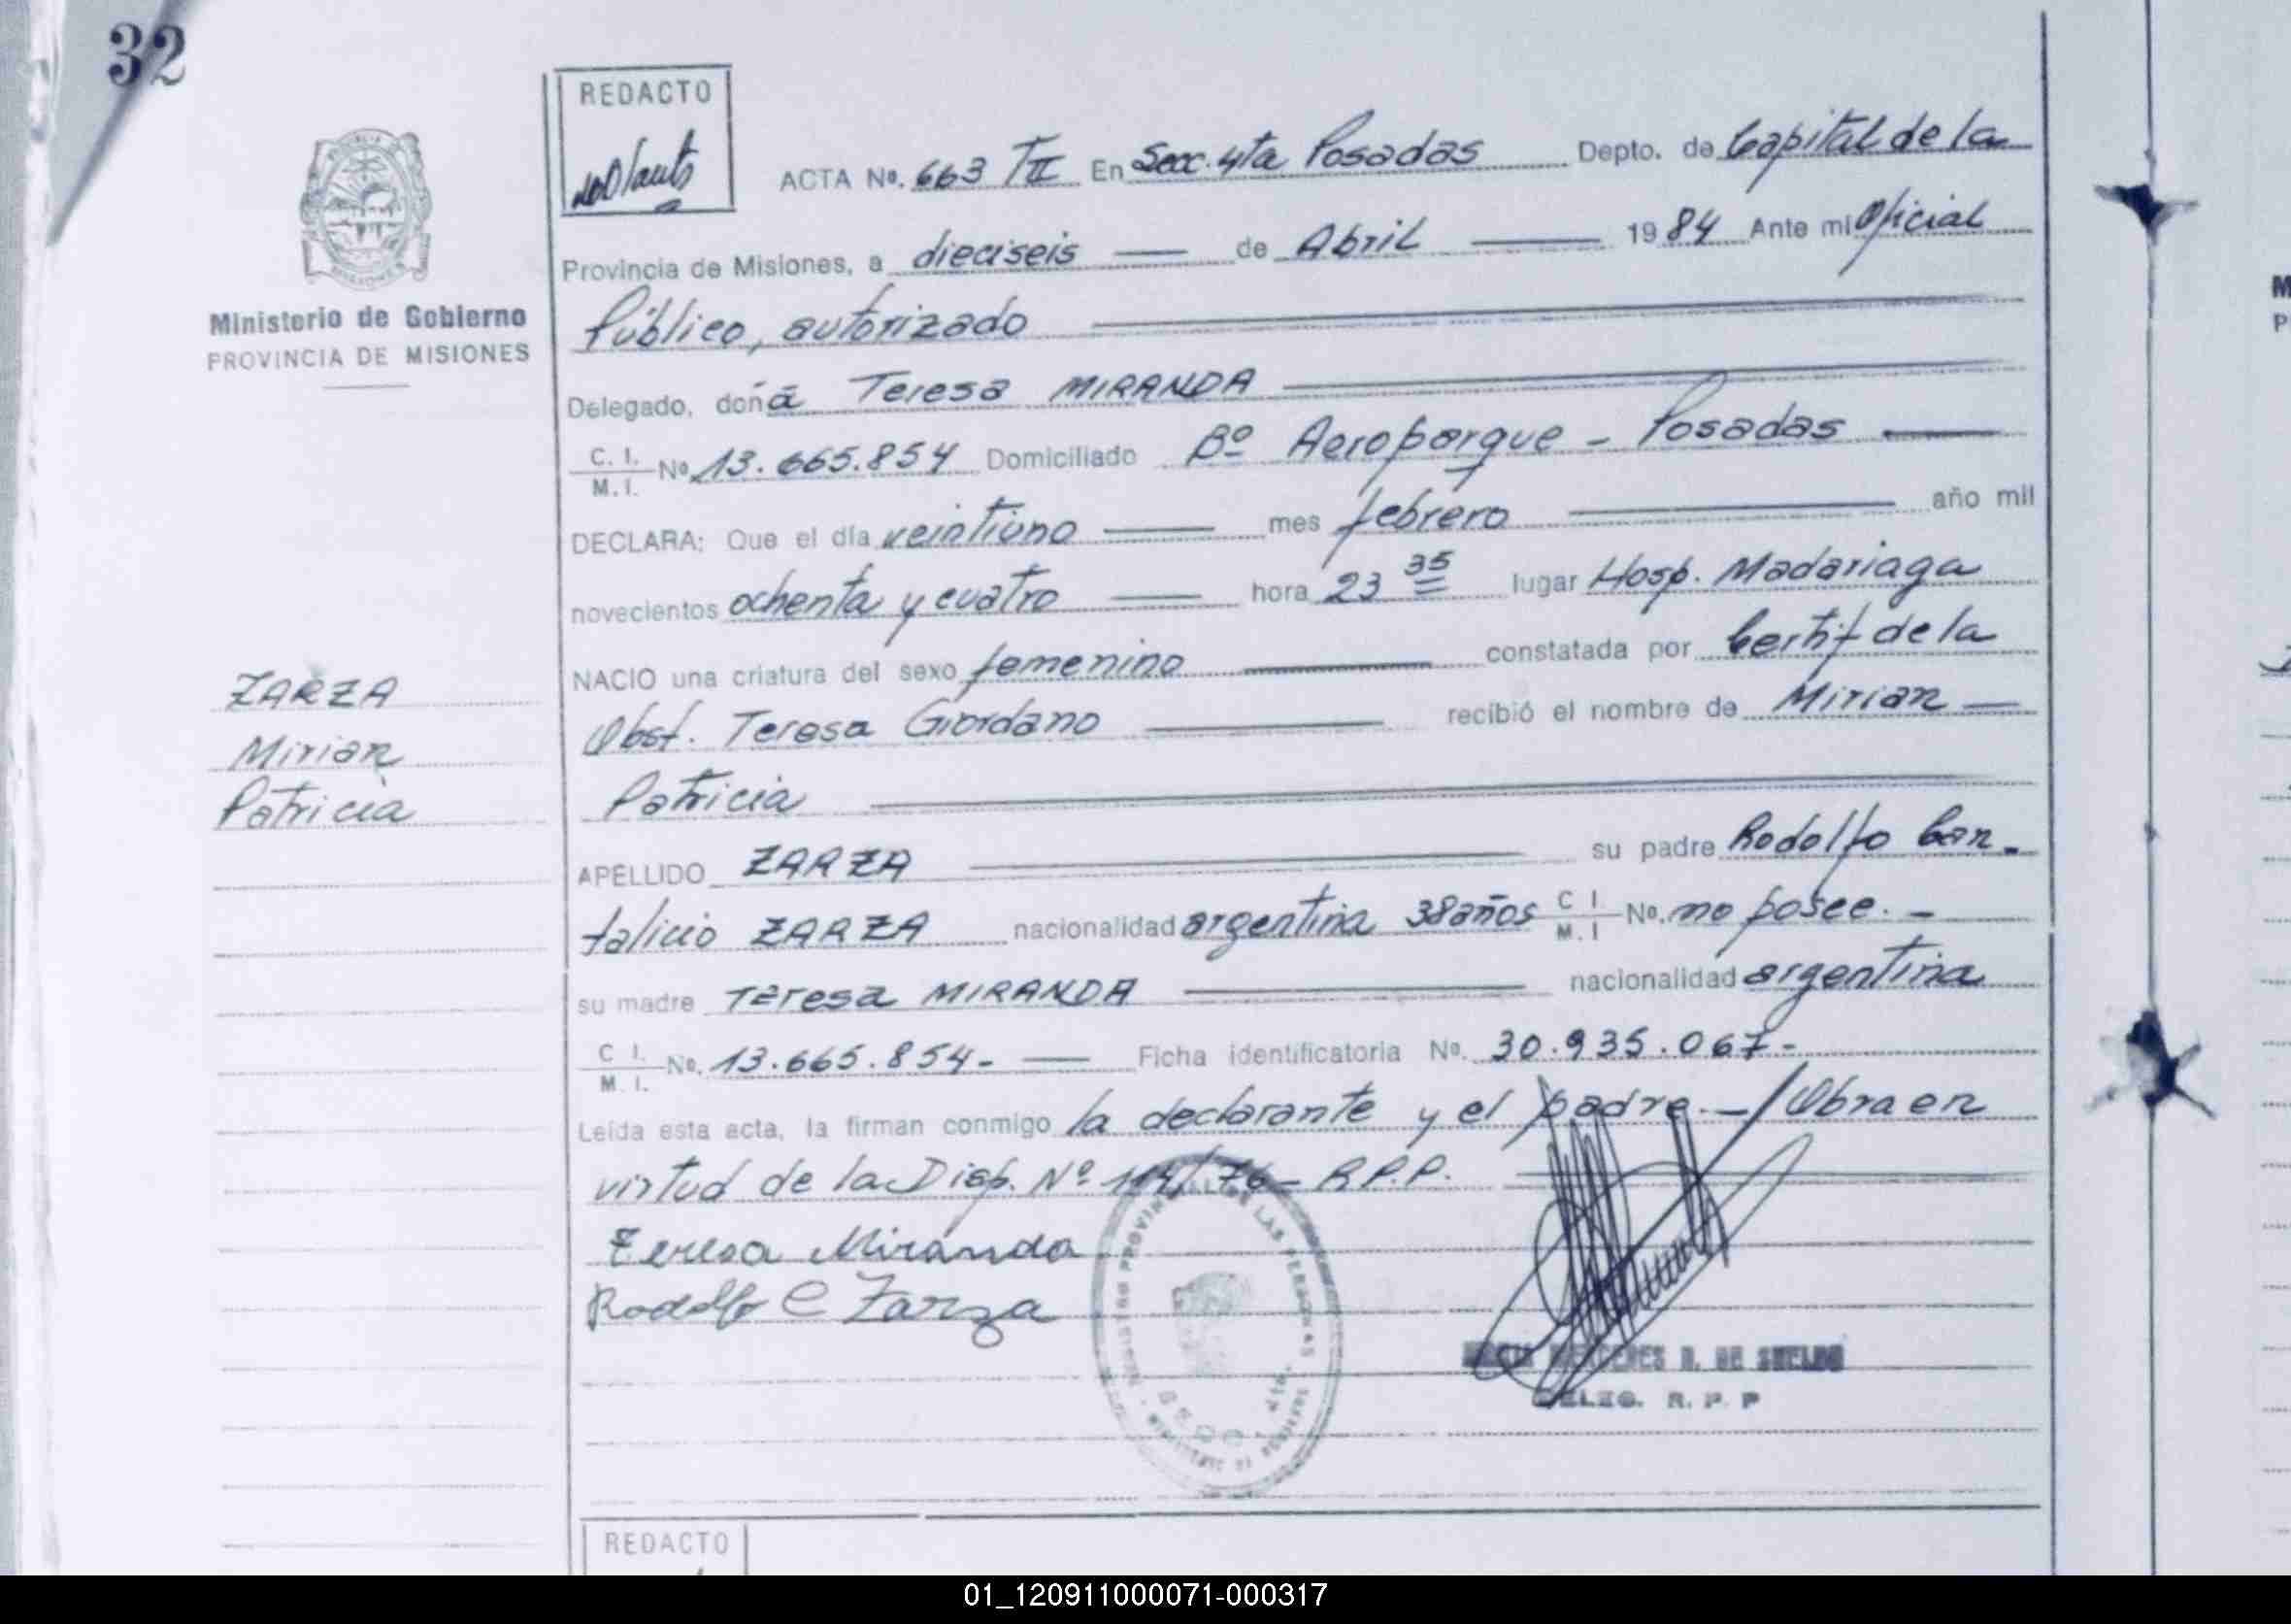 32
REDACTO
ACTA Nº. 663 TII En Secc. 4ta Posadas Depto. de Capital de la
Provincia de Misiones, a dieciseis — de Abril — 1984 Ante mi Oficial
Ministerio de Gobierno
PROVINCIA DE MISIONES
Público, autorizado
Delegado, doña Teresa MIRANDA
C. I. / M. I. Nº 13.665.854 Domiciliado Bº Aeroparque - Posadas —
DECLARA: Que el día veintiuno — mes febrero — año mil
novecientos ochenta y cuatro — hora 23 35 lugar Hosp. Madariaga
NACIO una criatura del sexo femenino — constatada por Certif de la
Obst. Teresa Giordano — recibió el nombre de Mirian —
Patricia
ZARZA
Mirian
Patricia
APELLIDO ZARZA — su padre Rodolfo Can-
talicio ZARZA nacionalidad argentina 38 años C I / M. I Nº. no posee. -
su madre Teresa MIRANDA — nacionalidad argentina
C I. / M. I. Nº. 13.665.854- — Ficha identificatoria Nº. 30.935.067-
Leída esta acta, la firman conmigo la declarante y el padre.-/Obra en
virtud de la Disp. Nº 114/76- R.P.P.
Teresa Miranda
Rodolfo C Zarza
MERCEDES D. DE SUELDO
DELEG. R. P. P
REDACTO
01_120911000071-000317